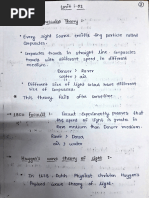 Unit - 02
Corpuscular Theory :-
• Every light source emitts tiny particle called
corpuscles.
• Corpuscles travels in straight line. corpuscles
travels with different speed in different
medium.
Denser : Rarer
water : air
• Different size of light colour have different
size of corpuscles.
* This theory fails after sometime.
1850 Foucault : Foucault experimentally proves that
the speed of light is greater in
rarer medium than denser medium.
Rarer : Denser
air : water
Huygen's wave theory of light :-
• In 1678 - Dutch Physicist christian Huygen's
Proposed wave theory of light.